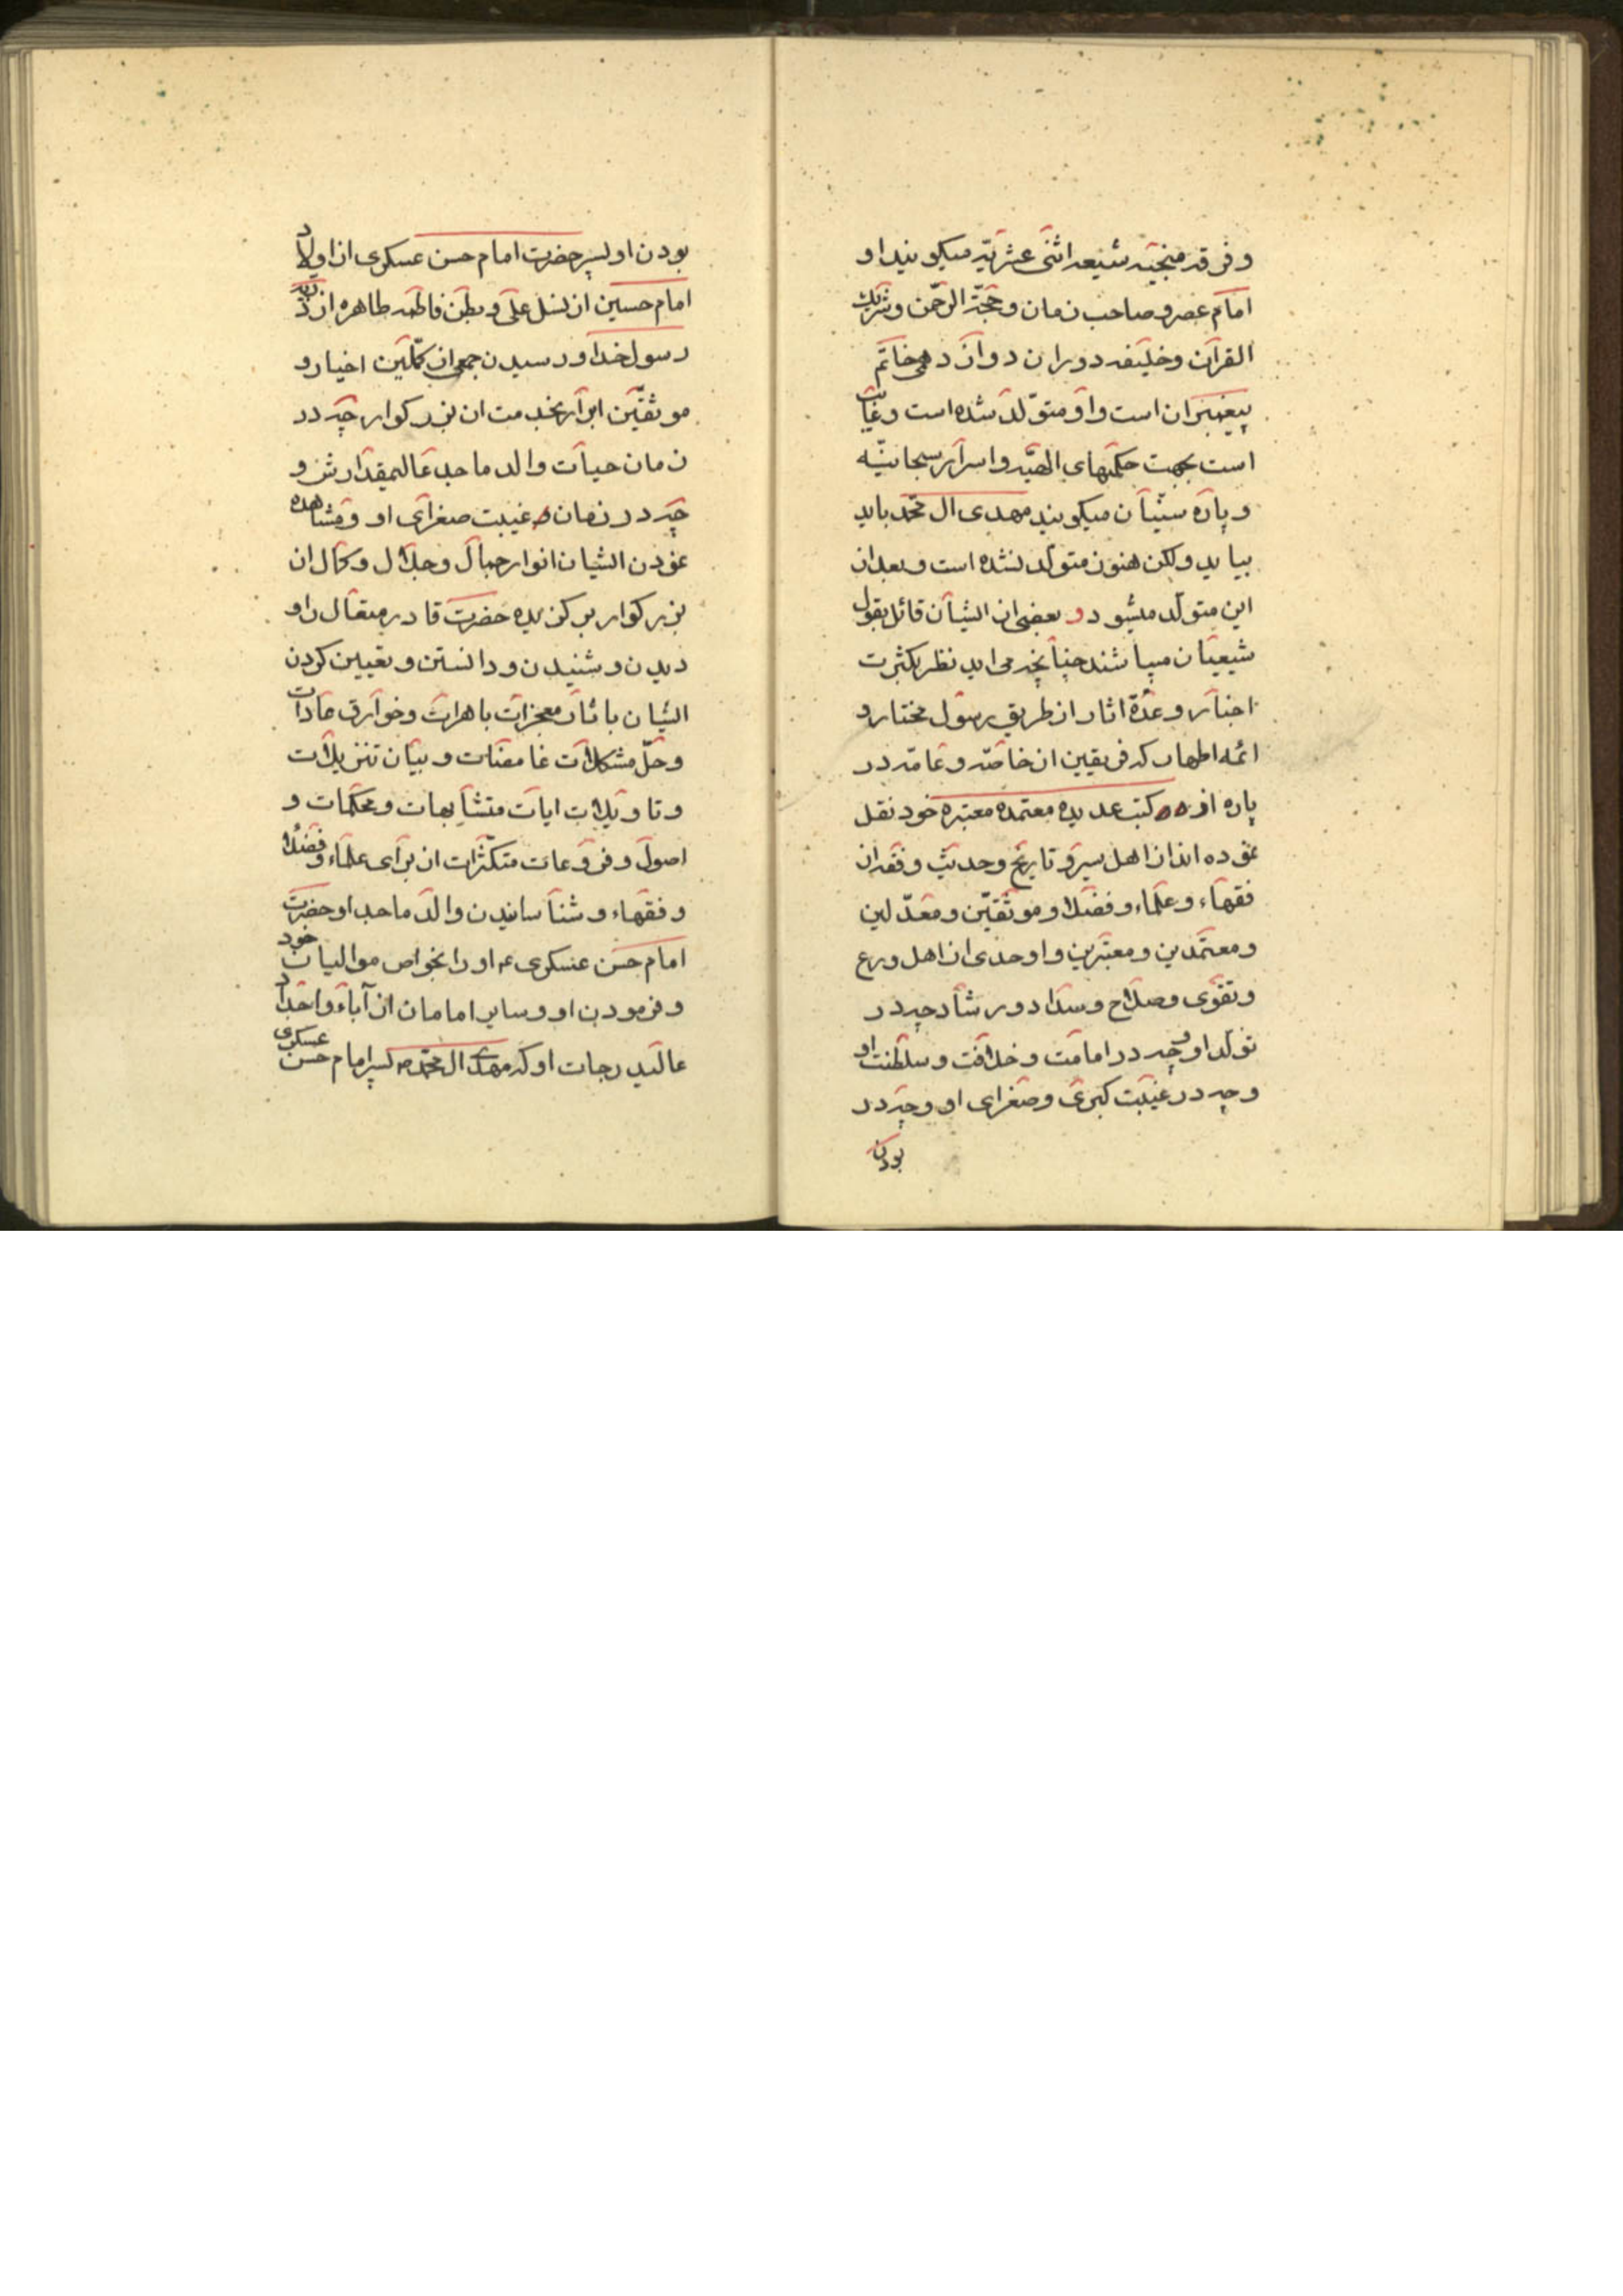 و فرقه منجیه شیعه اثنی عشریّه میکویند او
امام عصر و صاحب زمان و حجّة الرحمن و شریک
القرآن و خلیفه دوران دوازدهمی خاتم
پیغمبران است و او متولّد شده است و غایب
است بجهت حکمتهای الهیّه و اسرار سبحانیّه
و پاره سنّیان میکویند مهدی ال محمّد باید
بیاید ولکن هنوز متولّد نشده است و بعد از
این متولّد میشود و بعضی از ایشان قائل بقول
شیعیان میباشند چنانچه می اید نظر بکثرت
اخبار و عدّة اثار از طریق رسول مختار و
ائمه اطهار که فریقین از خاصّه و عامّه در
پاره از کتب عدیده معتمده معتبره خود نقل
نموده اند از اهل سیر و تاریخ و حدیث و فقه از
فقهاء و علماء و فضلا و موثّقین و معدّلین
و معتمدین و معتبرین و اوحدی از اهل ورع
و تقوی و صلاح و سداد و رشاد چه در
تولّد او و چه در امامت و خلافت و سلطنت او
و چه در غیبت کبری و صغرای او و چه در
بودن
بودن او پسر حضرت امام حسن عسکری از اولاد
امام حسین از نسل علی و بطن فاطمه طاهره از ذریّه
رسول خدا و رسیدن جمعی از کمّلین اخیار و
موثقّین ابرار بخدمت ان بزرکوار چه در
زمان حیات والد ماجد عالیمقدارش و
چه در زمان غیبت صغرای او و مشاهده
نمودن ایشان انوار جمال و جلال و کمال ان
بزرکوار برکزیده حضرت قادر متعال را و
دیدن و شنیدن و دانستن و تعیین کردن
ایشان باثار معجزات باهرات و خوارق عادات
و حلّ مشکلات غامضات و بیان تنزیلات
و تاویلات ایات متشابهات و محکمات و
اصول و فروعات متکثّرات ان برای علماء و فضلا
و فقهاء و شناسانیدن والد ماجد او حضرت
امام حسن عسکری ع او را بخواص موالیان خود
و فرمودن او و سایر امامان از آباء و اجداد
عالیدرجات او که مهدی ال محمّد ص پسر امام حسن عسکری